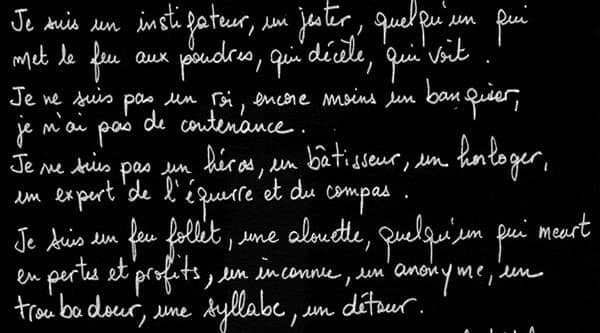 Je suis un instigateur, un jester, quelqu'un qui
met le feu aux poudres, qui décèle, qui voit.
Je ne suis pas un roi, encore moins un banquier,
je n'ai pas de contenance.
Je ne suis pas un héros, un bâtisseur, un horloger,
un expert de l'équerre et du compas.
Je suis un feu follet, une alouette, quelqu'un qui meurt
en pertes et profits, un inconnu, un anonyme, un
troubadour, une syllabe, un détour.